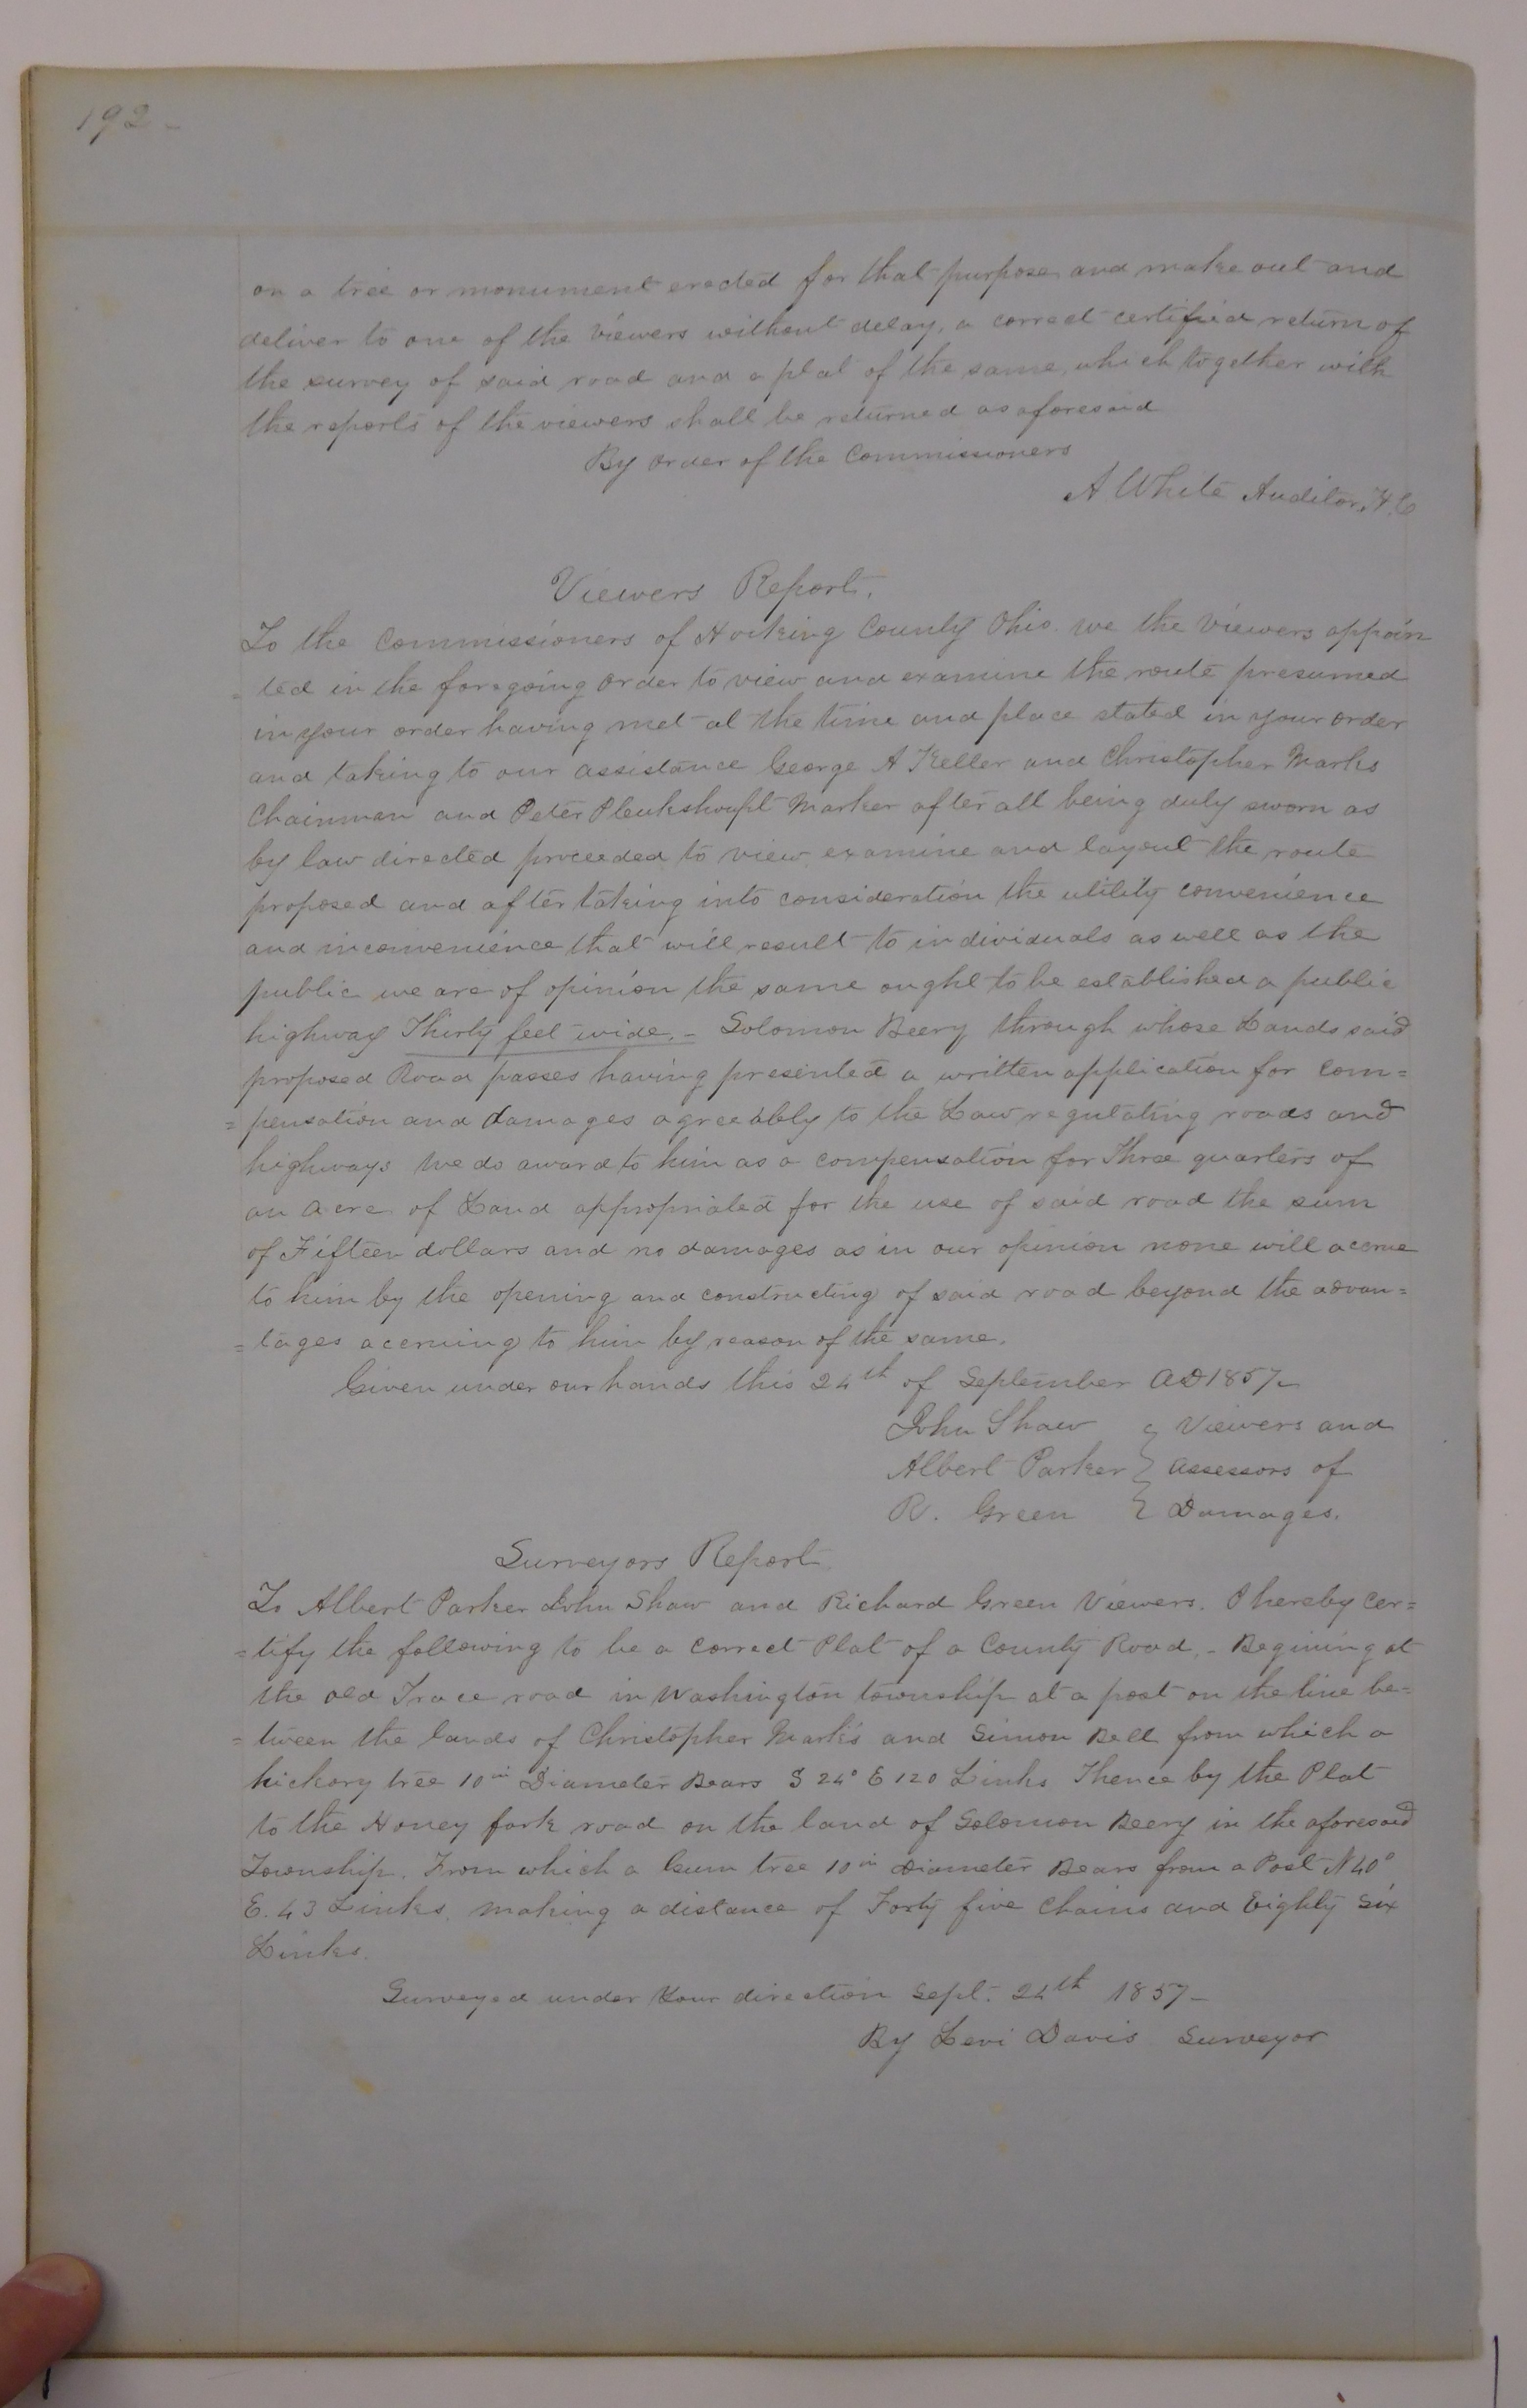 192-
on a tree or monument erected for that purpose and make out and
deliver to one of the viewers without delay, a correct certified return of
the survey of said road and a plat of the same, which together with
the reports of the viewers shall be returned as aforesaid
By order of the Commissioners
A White Auditor, H.C
Viewers Report.
To the Commissioners of Hocking County Ohio. we the Viewers appoin
= ted in the foregoing order to view and examine the route presumed
in your order having met at the time and place stated in your order
and taking to our assistance George A Keller and Christopher Marks
Chainman and Peter Marker after all being duly sworn as
by law directed proceeded to view examine and layout the route
proposed and after taking into consideration the utility convenience
and inconvenience that will result to individuals as well as the
public we are of opinion the same ought to be established a public
highway Thirty feet wide. - Solomon Beery through whose Lands said
proposed Road passes having presented a written application for Com=
= pensation and damages agreeably to the Law regulating roads and
highways We do award to him as a compensation for Three quarters of
an Acre of Land appropriated for the use of said road the sum
of Fifteen dollars and no damages as in our opinion none will accrue
to him by the opening and constructing of said road beyond the advan=
= tages accruing to him by reason of the same.
Given under our hands this 24th of September AD 1857-
John Shaw } Viewers and
Albert Parker } Assessors of
R. Green } Damages.
Surveyors Report.
To Albert Parker John Shaw and Richard Green Viewers. I hereby Cer=
= tify the following to be a correct Plat of a County Road. - Begining at
the old Trace road in Washington township at a post on the line be=
= tween the lands of Christopher Marks and Simon Bell from which a
hickory tree 10in Diameter Bears S 24° E 120 Links Thence by the Plat
to the Honey fork road on the land of Solomon Beery in the aforesaid
Township. From which a Gum tree 10in Diameter Bears from a Post N 40°
E. 43 Links. making a distance of Forty five Chains and Eighty Six
Links.
Surveyed under Your direction Sept. 24th 1857-
By Levi Davis Surveyor